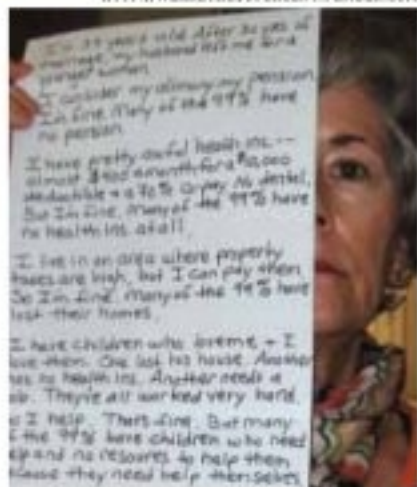 years old. After 30 yrs of
marriage, my husband left me for a
younger woman.
I consider my alimony my pension.
I'm fine. Many of the 99% have
no pension.
I have pretty awful health ins. --
almost a month for a
deductible + a co-pay. No dental.
But I'm fine. Many of the 99% have
no health ins at all.
I live in an area where property
taxes are high, but I can pay them.
So I'm fine. Many of the 99% have
lost their homes.
I have children who love me + I
love them. One lost his house. Another
has no health ins. Another needs a
job. They've all worked very hard.
So I help. That's fine. But many
of the 99% have children who need
help and no resources to help them
because they need help themselves.